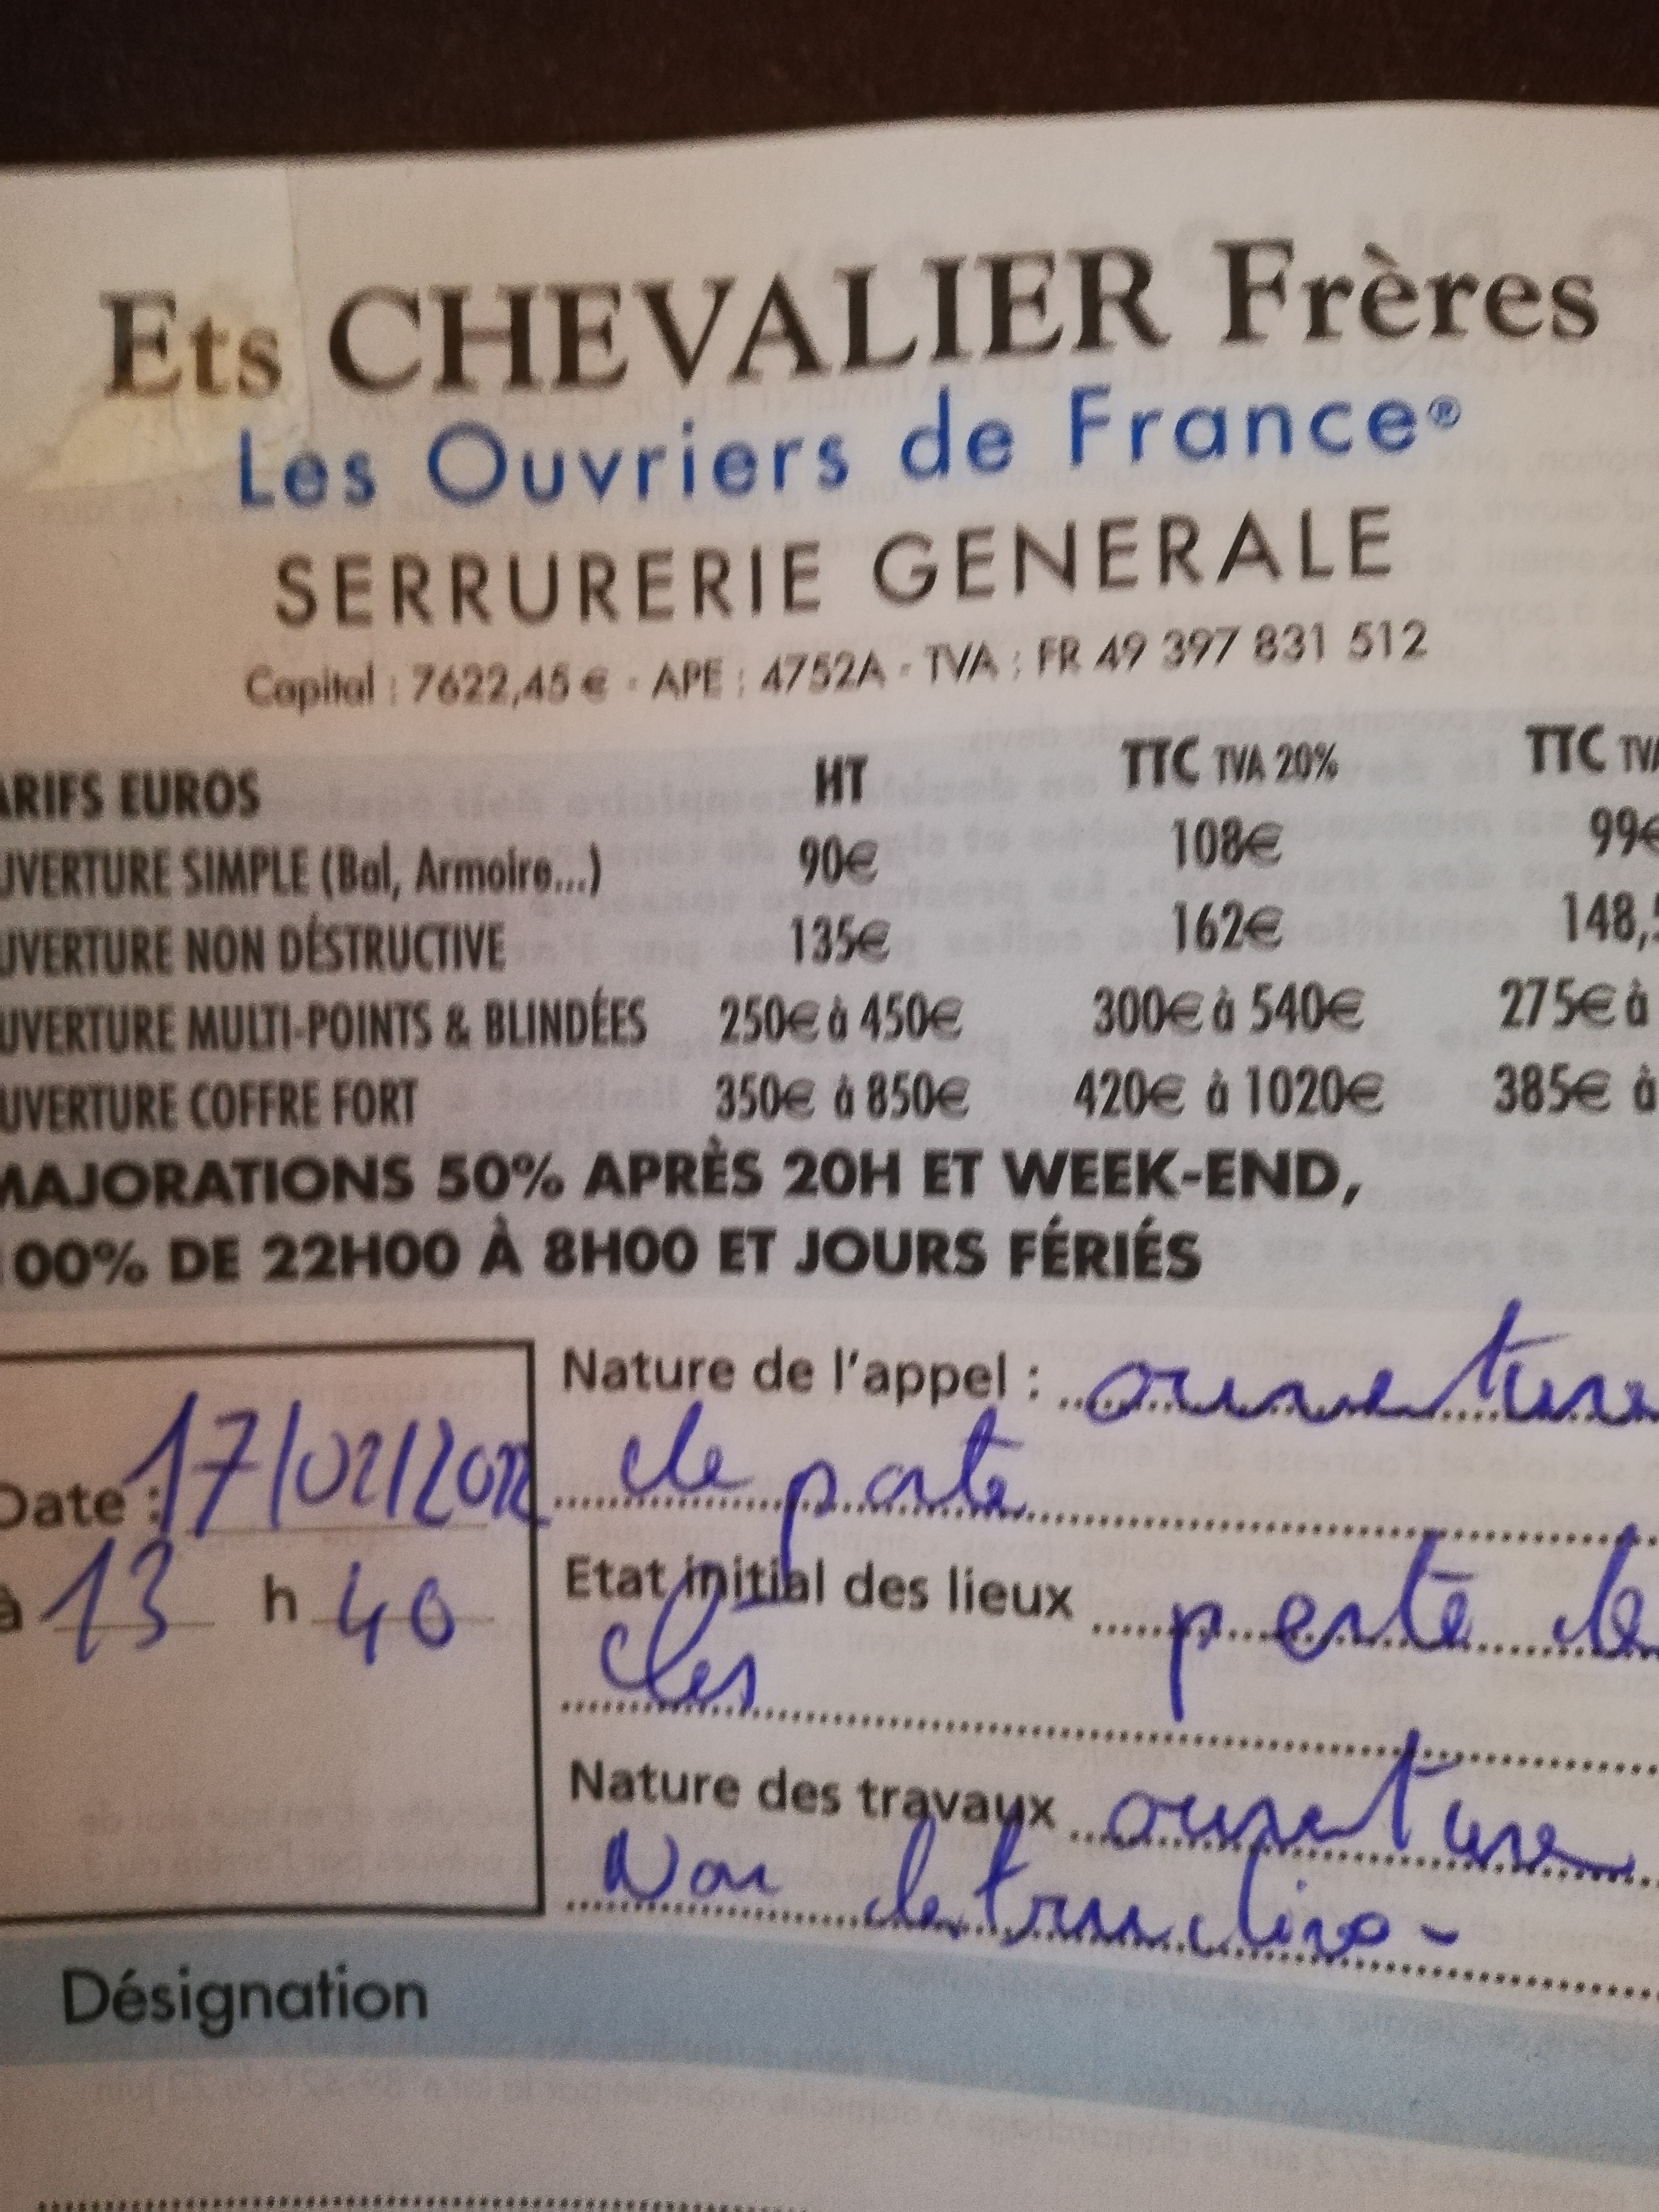 Ets CHEVALIER Frères
Les Ouvriers de France®
SERRURERIE GENERALE
Capital : 7622,45 € - APE : 4752A - TVA : FR 49 397 831 512
ARIFS EUROS HT TTC TVA 20% TTC TVA
UVERTURE SIMPLE (Bal, Armoire...) 90€ 108€ 99€
UVERTURE NON DÉSTRUCTIVE 135€ 162€ 148,5
UVERTURE MULTI-POINTS & BLINDÉES 250€ à 450€ 300€ à 540€ 275€ à
UVERTURE COFFRE FORT 350€ à 850€ 420€ à 1020€ 385€ à
MAJORATIONS 50% APRÈS 20H ET WEEK-END,
100% DE 22H00 À 8H00 ET JOURS FÉRIÉS
Nature de l'appel : ouverture
de porte
Date : 17/02/2022
Etat initial des lieux perte de
à 13 h 40
clés
Nature des travaux ouverture
Non destructive -
Désignation